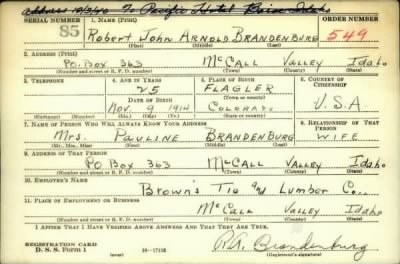 Address 10/3/40 To Pacific Hotel Boise Idaho
SERIAL NUMBER 1. NAME (Print) ORDER NUMBER
85 Robert John Arnold Brandenburg 549
(First) (Middle) (Last)
2. ADDRESS (Print)
P.O. Box 363 McCall Valley Idaho
(Number and street or R. F. D. number) (Town) (County) (State)
3. TELEPHONE 4. AGE IN YEARS 5. PLACE OF BIRTH 6. COUNTRY OF CITIZENSHIP
25 FLAGLER
DATE OF BIRTH (Town or county)
Nov 9 1914 Colorado U.S.A
(Exchange) (Number) (Mo.) (Day) (Yr.) (State or country)
7. NAME OF PERSON WHO WILL ALWAYS KNOW YOUR ADDRESS 8. RELATIONSHIP OF THAT PERSON
Mrs. Pauline Brandenburg Wife
(Mr., Mrs., Miss) (First) (Middle) (Last)
9. ADDRESS OF THAT PERSON
P.O Box 363 McCall Valley Idaho
(Number and street or R. F. D. number) (Town) (County) (State)
10. EMPLOYER'S NAME
Brown's Tie and Lumber Co...
11. PLACE OF EMPLOYMENT OR BUSINESS
McCall Valley Idaho
(Number and street or R. F. D. number) (Town) (County) (State)
I AFFIRM THAT I HAVE VERIFIED ABOVE ANSWERS AND THAT THEY ARE TRUE.
REGISTRATION CARD
D. S. S. Form 1 (over) 16—17135 R.A. Brandenburg
(Registrant's signature)